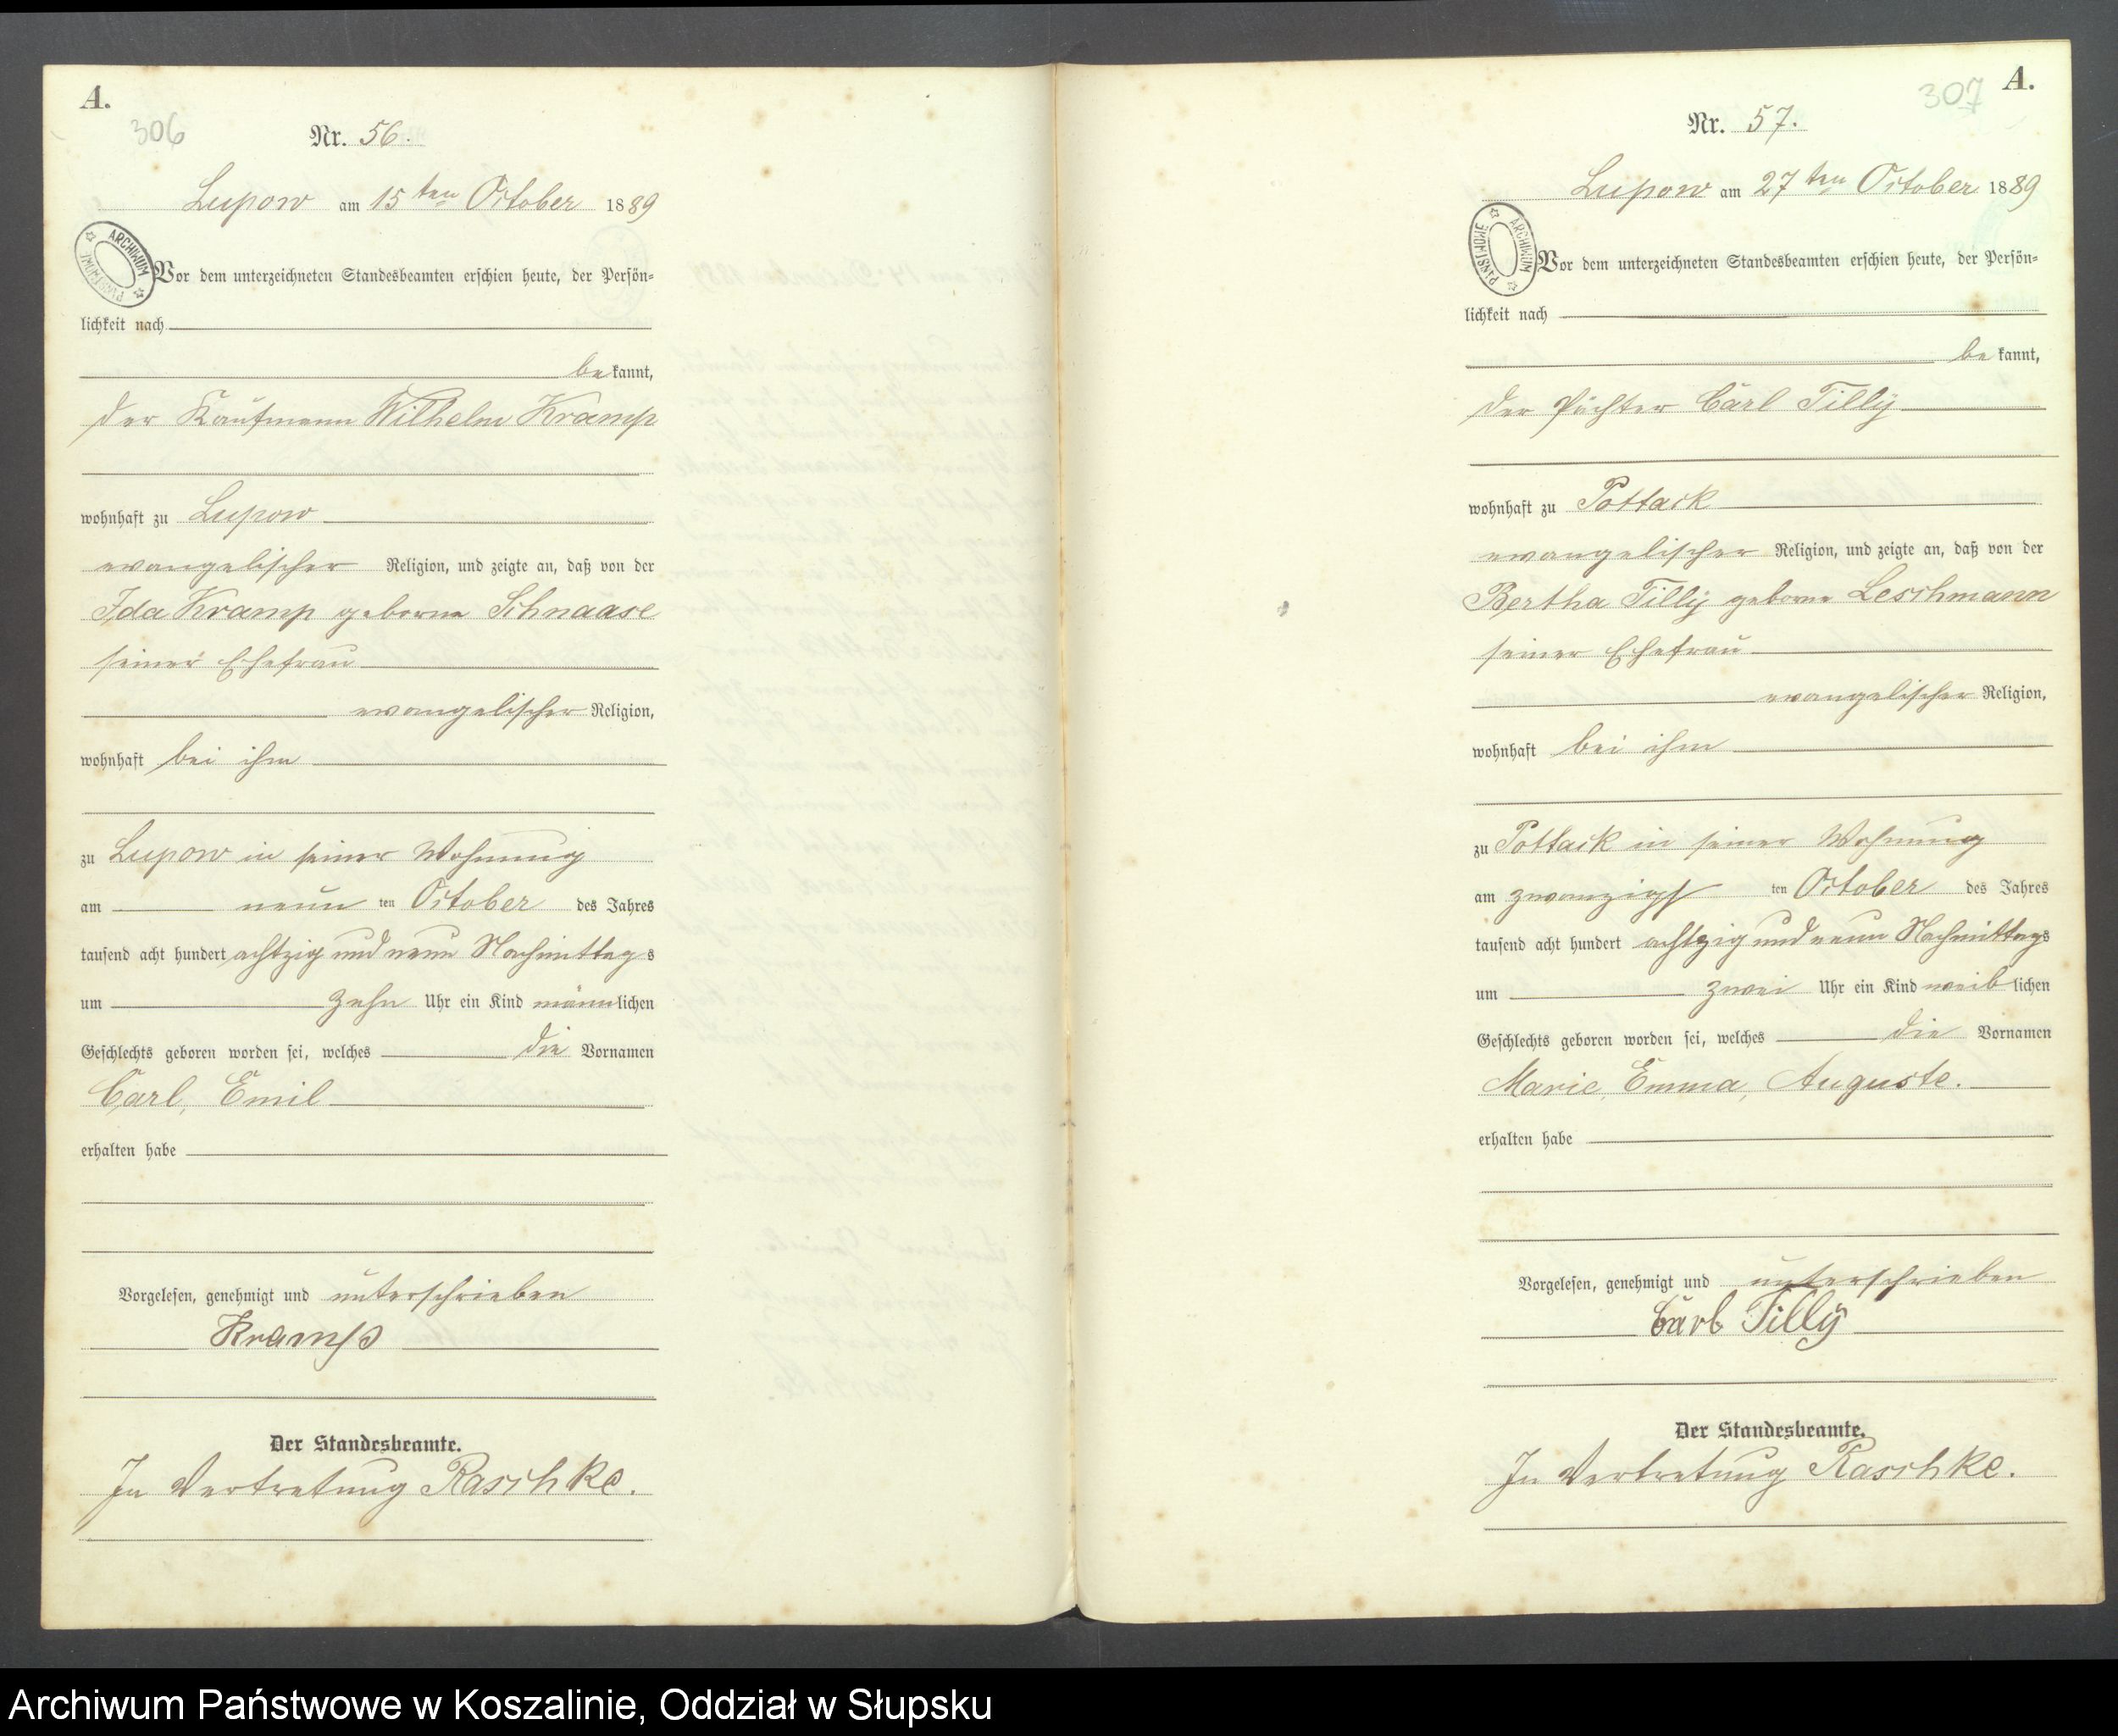 A.
306
Nr. 56.
Lupow am 15ten October 1889
ARCHIWUM PAŃSTWOWE
Vor dem unterzeichneten Standesbeamten erschien heute, der Persön=
lichkeit nach
bekannt,
der Kaufmann Wilhelm Kramp
wohnhaft zu Lupow
evangelischer Religion, und zeigte an, daß von der
Ida Kramp geborne Schnaase
seiner Ehefrau
evangelischer Religion,
wohnhaft bei ihm
zu Lupow in seiner Wohnung
am neunten October des Jahres
tausend acht hundert achtzig und neun Nachmittags
um zehn Uhr ein Kind männlichen
Geschlechts geboren worden sei, welches die Vornamen
Carl, Emil
erhalten habe
Vorgelesen, genehmigt und unterschrieben
Kramp
Der Standesbeamte.
In Vertretung Raschke.
307 A.
Nr. 57.
Lupow am 27ten October 1889
ARCHIWUM PAŃSTWOWE
Vor dem unterzeichneten Standesbeamten erschien heute, der Persön=
lichkeit nach
bekannt,
der Pächter Carl Tilly
wohnhaft zu Pottack
evangelischer Religion, und zeigte an, daß von der
Bertha Tilly geborne Leschmann
seiner Ehefrau
evangelischer Religion,
wohnhaft bei ihm
zu Pottack in seiner Wohnung
am zwanzigsten October des Jahres
tausend acht hundert achtzig und neun Nachmittags
um zwei Uhr ein Kind weiblichen
Geschlechts geboren worden sei, welches die Vornamen
Marie, Emma, Auguste.
erhalten habe
Vorgelesen, genehmigt und unterschrieben
Carl Tilly
Der Standesbeamte.
In Vertretung Raschke.
Archiwum Państwowe w Koszalinie, Oddział w Słupsku